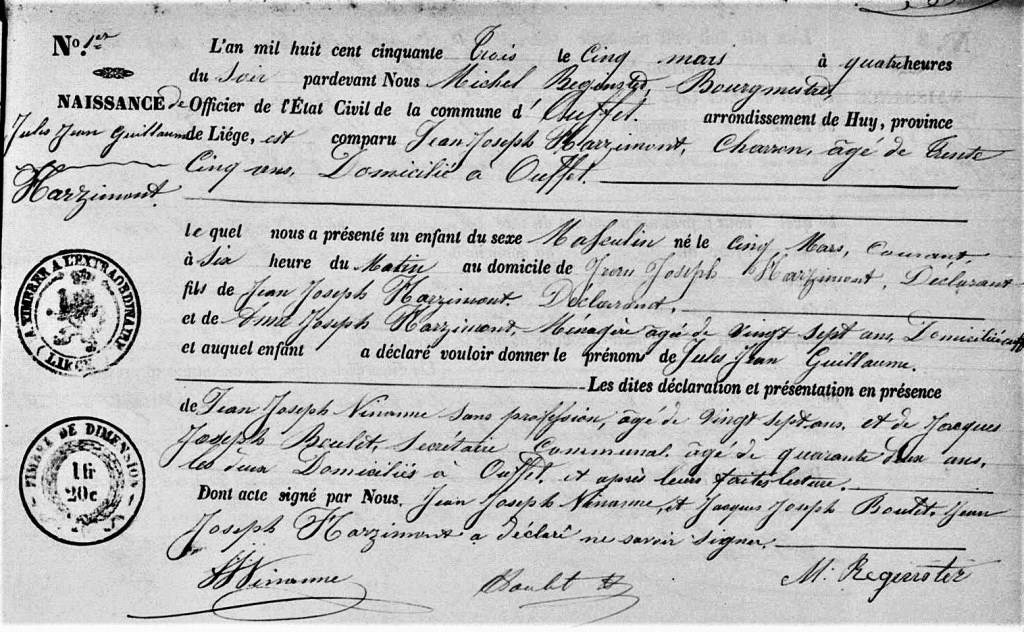 No. 1er
L'an mil huit cent cinquante Trois le Cinq mars à quatre heures
du Soir pardevant Nous Michel Regenster, Bourgmestre
NAISSANCE de Officier de l'État Civil de la commune d' Ouffet. arrondissement de Huy, province
Jules Jean Guillaume de Liége, est comparu Jean Joseph Harzimont, Charron, âgé de trente
Cinq ans, Domicilié à Ouffet.
Harzimont.
le quel nous a présenté un enfant du sexe Masculin né le Cinq Mars, Courant,
à Six heure du Matin au domicile de Jean Joseph Harzimont, Déclarant
fils de Jean Joseph Harzimont. Déclarant,
et de Joseph Harzimont Ménagère agé de vingt sept ans, Domiciliée
et auquel enfant a déclaré vouloir donner le prénoms de Jules Jean Guillaume.
Les dites déclaration et présentation en présence
de Jean Joseph Ninanne sans profession, âgé de vingt sept ans, et de Jacques
Joseph Boulet, Secrétaire Communal âgé de quarante deux ans,
les deux Domiciliés à Ouffet, et après leurs faites lecture.
Dont acte signé par Nous, Jean Joseph Ninanne, et Jacques Joseph Boulet. Jean
Joseph Harzimont a déclaré ne savoir signer.
JJNinanne Boulet M. Regenster
A TIMBRER A L'EXTRAORDINAIRE
(LIEGE)
TIMBRE DE DIMENSION
16
20c